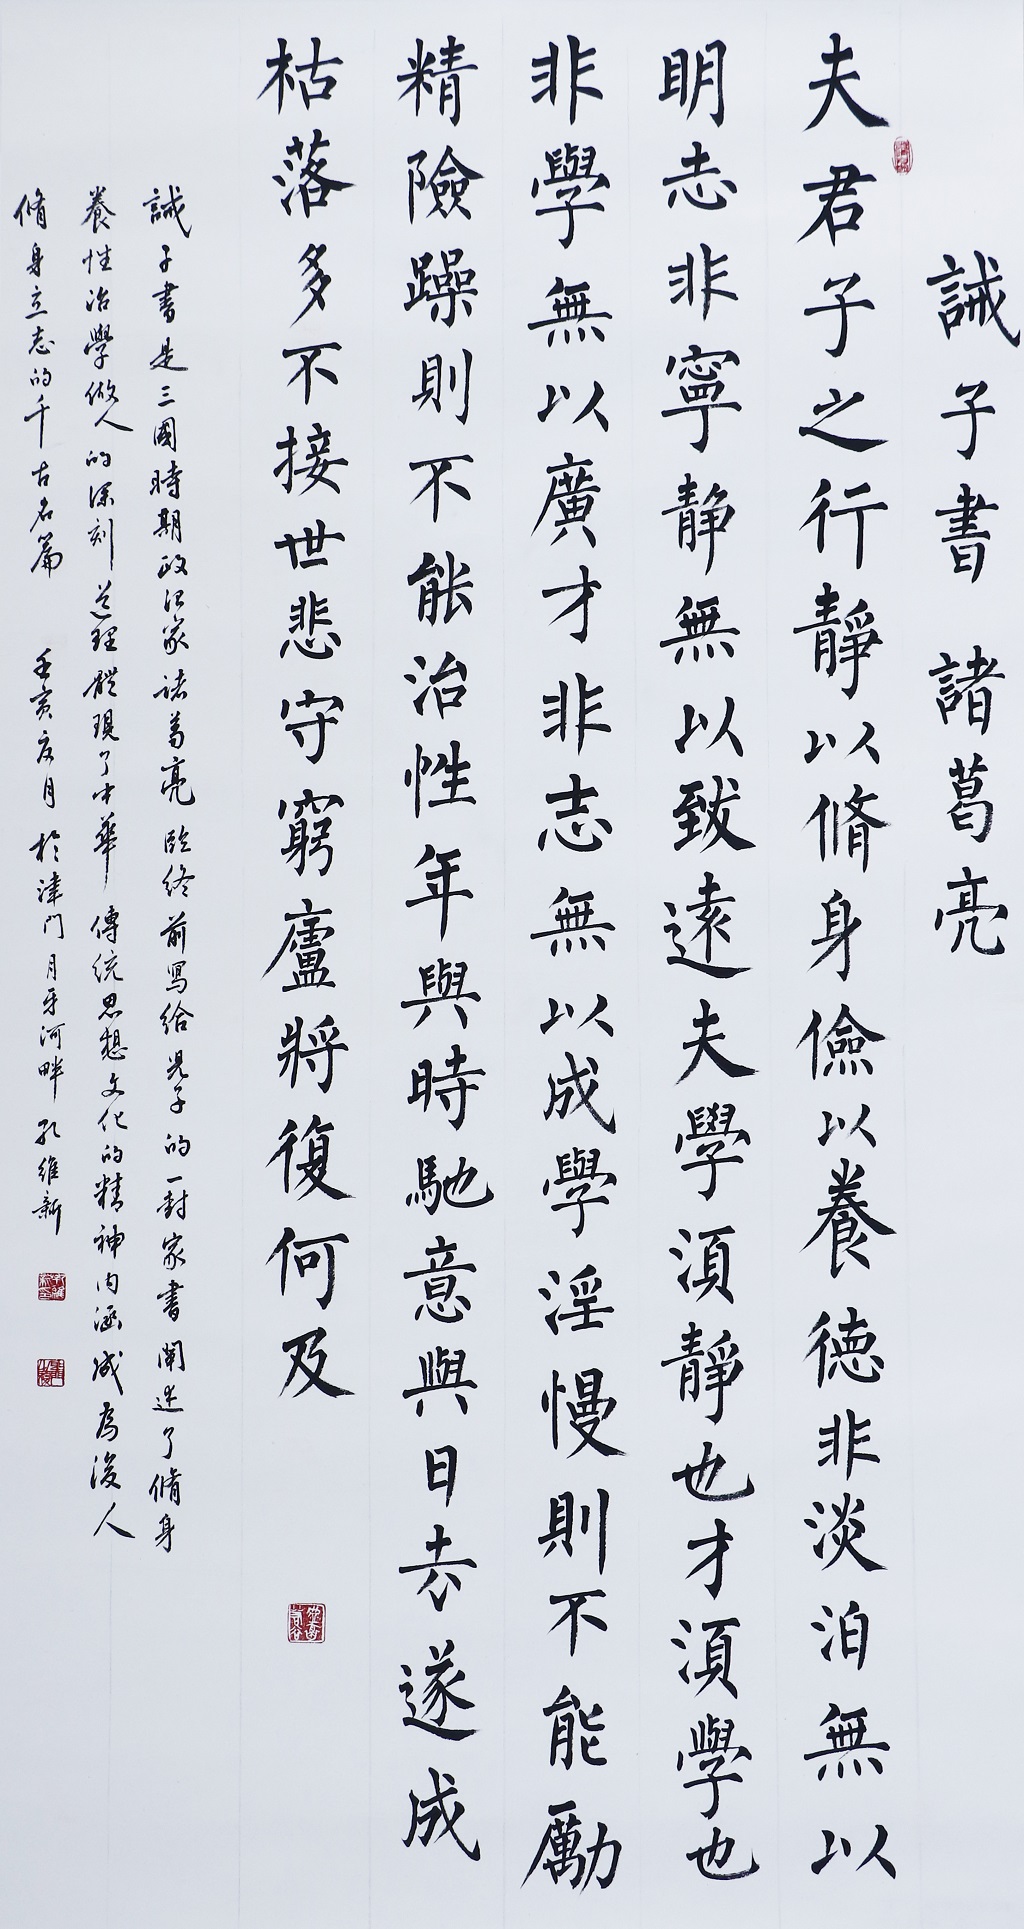 誡子書 諸葛亮
夫君子之行靜以脩身儉以養德非淡泊無以
明志非寧靜無以致遠夫學須靜也才須學也
非學無以廣才非志無以成學淫慢則不能勵
精險躁則不能治性年與時馳意與日去遂成
枯落多不接世悲守窮廬將復何及
誡子書是三國時期政治家諸葛亮臨終前寫給兒子的一封家書闡述了脩身
養性治學做人的深刻道理體現了中華傳統思想文化的精神内涵成為後人
脩身立志的千古名篇 壬寅月於津門月牙河畔 孔維新